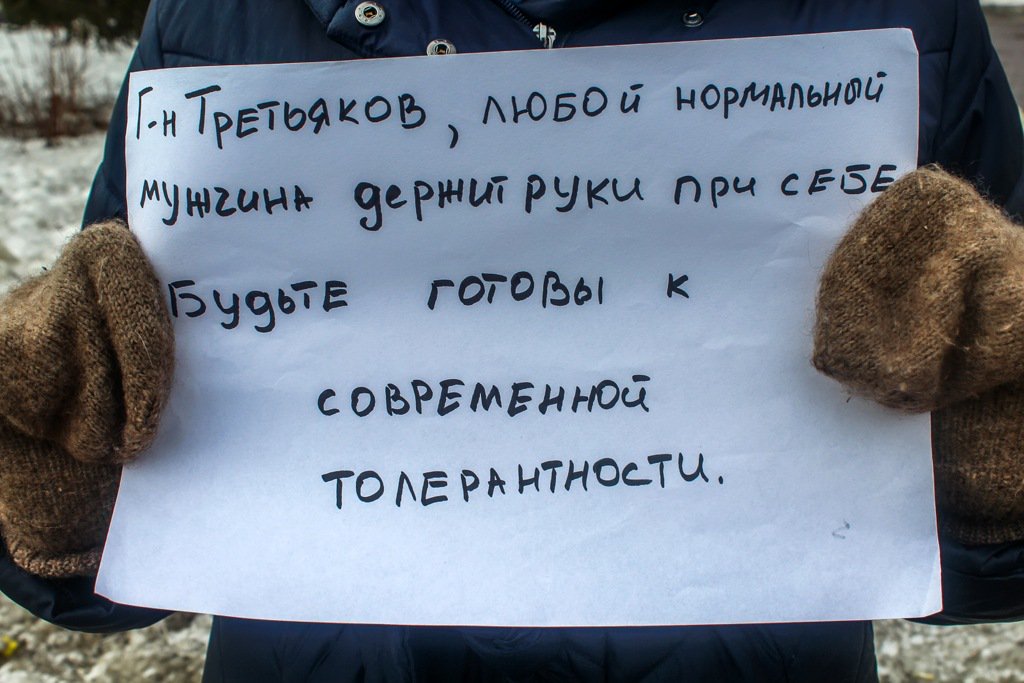 Г-н Третьяков, любой нормальный
мужчина держит руки при себе
Будьте готовы к
современной
толерантности.